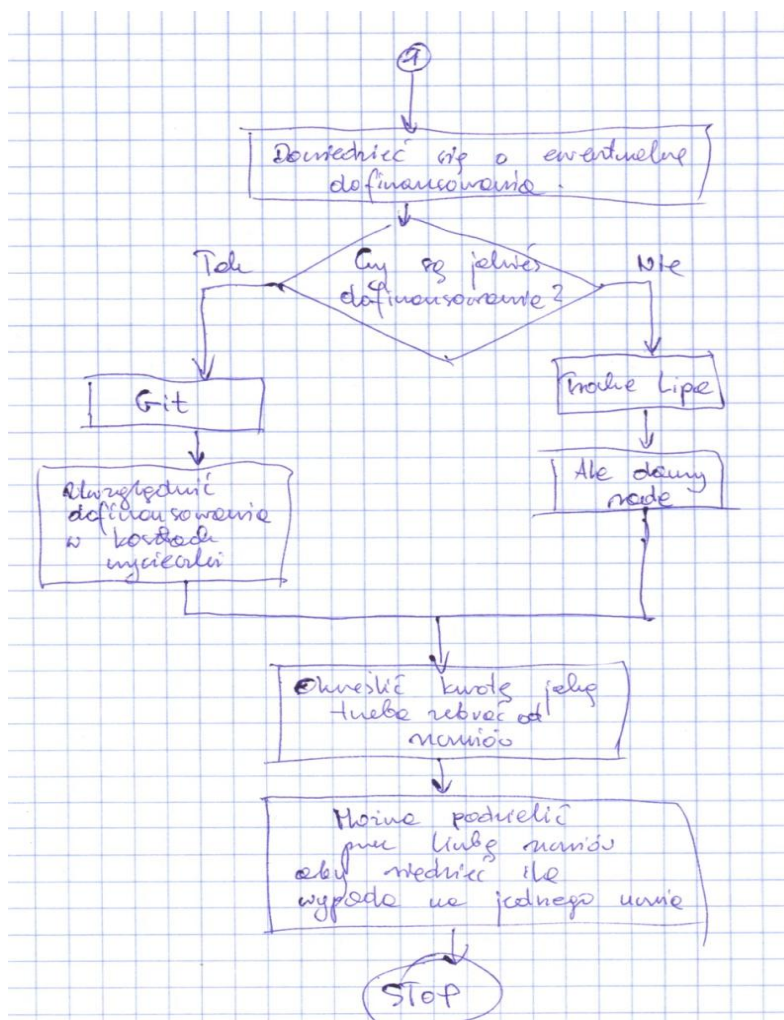 1
Dowiedzieć się o ewentualne
dofinansowania.
Tak
Czy są jakieś
dofinansowanie?
Nie
Git
Trochę Lipa
Uwzględnić
dofinansowania
w kosztach
wycieczki
Ale damy
radę
Określić kwotę jaką
trzeba zebrać od
uczniów
Można podzielić
przez liczbę uczniów
aby wiedzieć ile
wypada na jednego ucznia
STOP